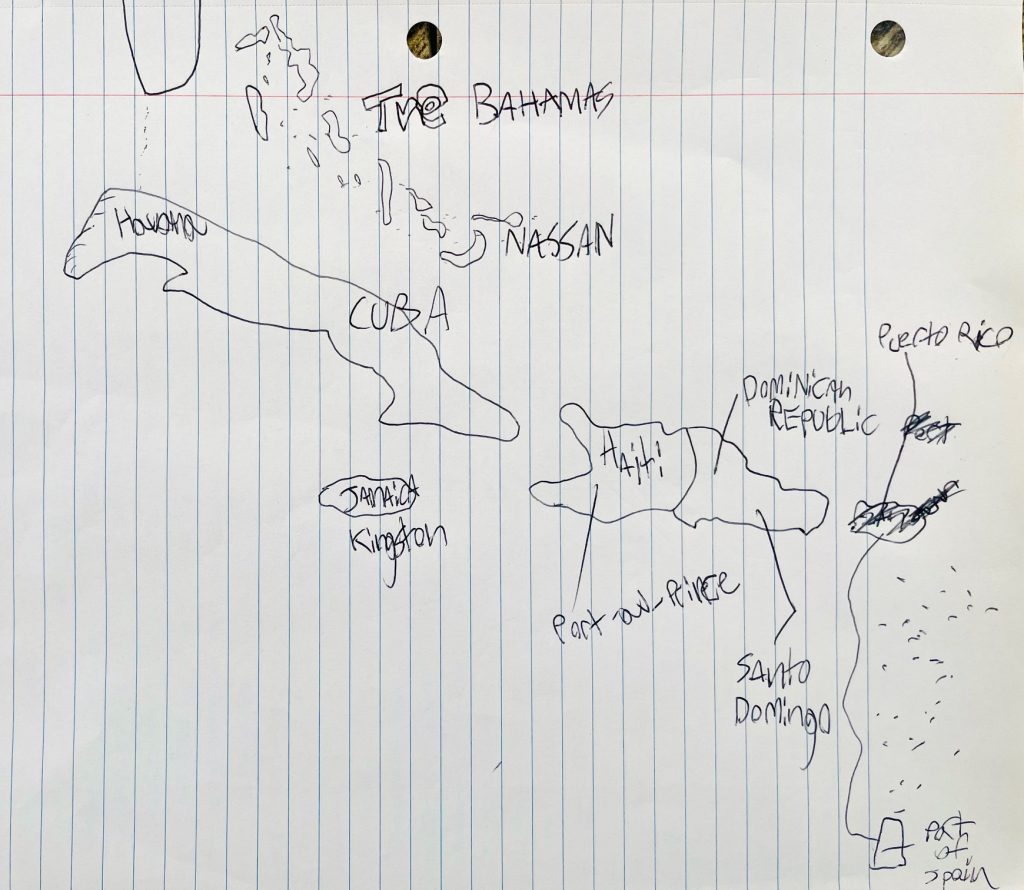 The BAHAMAS
Havana
NASSAN
CUBA
Puerto Rico
DOMiNiCAN
REPUBLiC
HAiti
JAMAiCA
Kingston
Port-au-Prince
SANto
DOMingo
Port
of
Spain